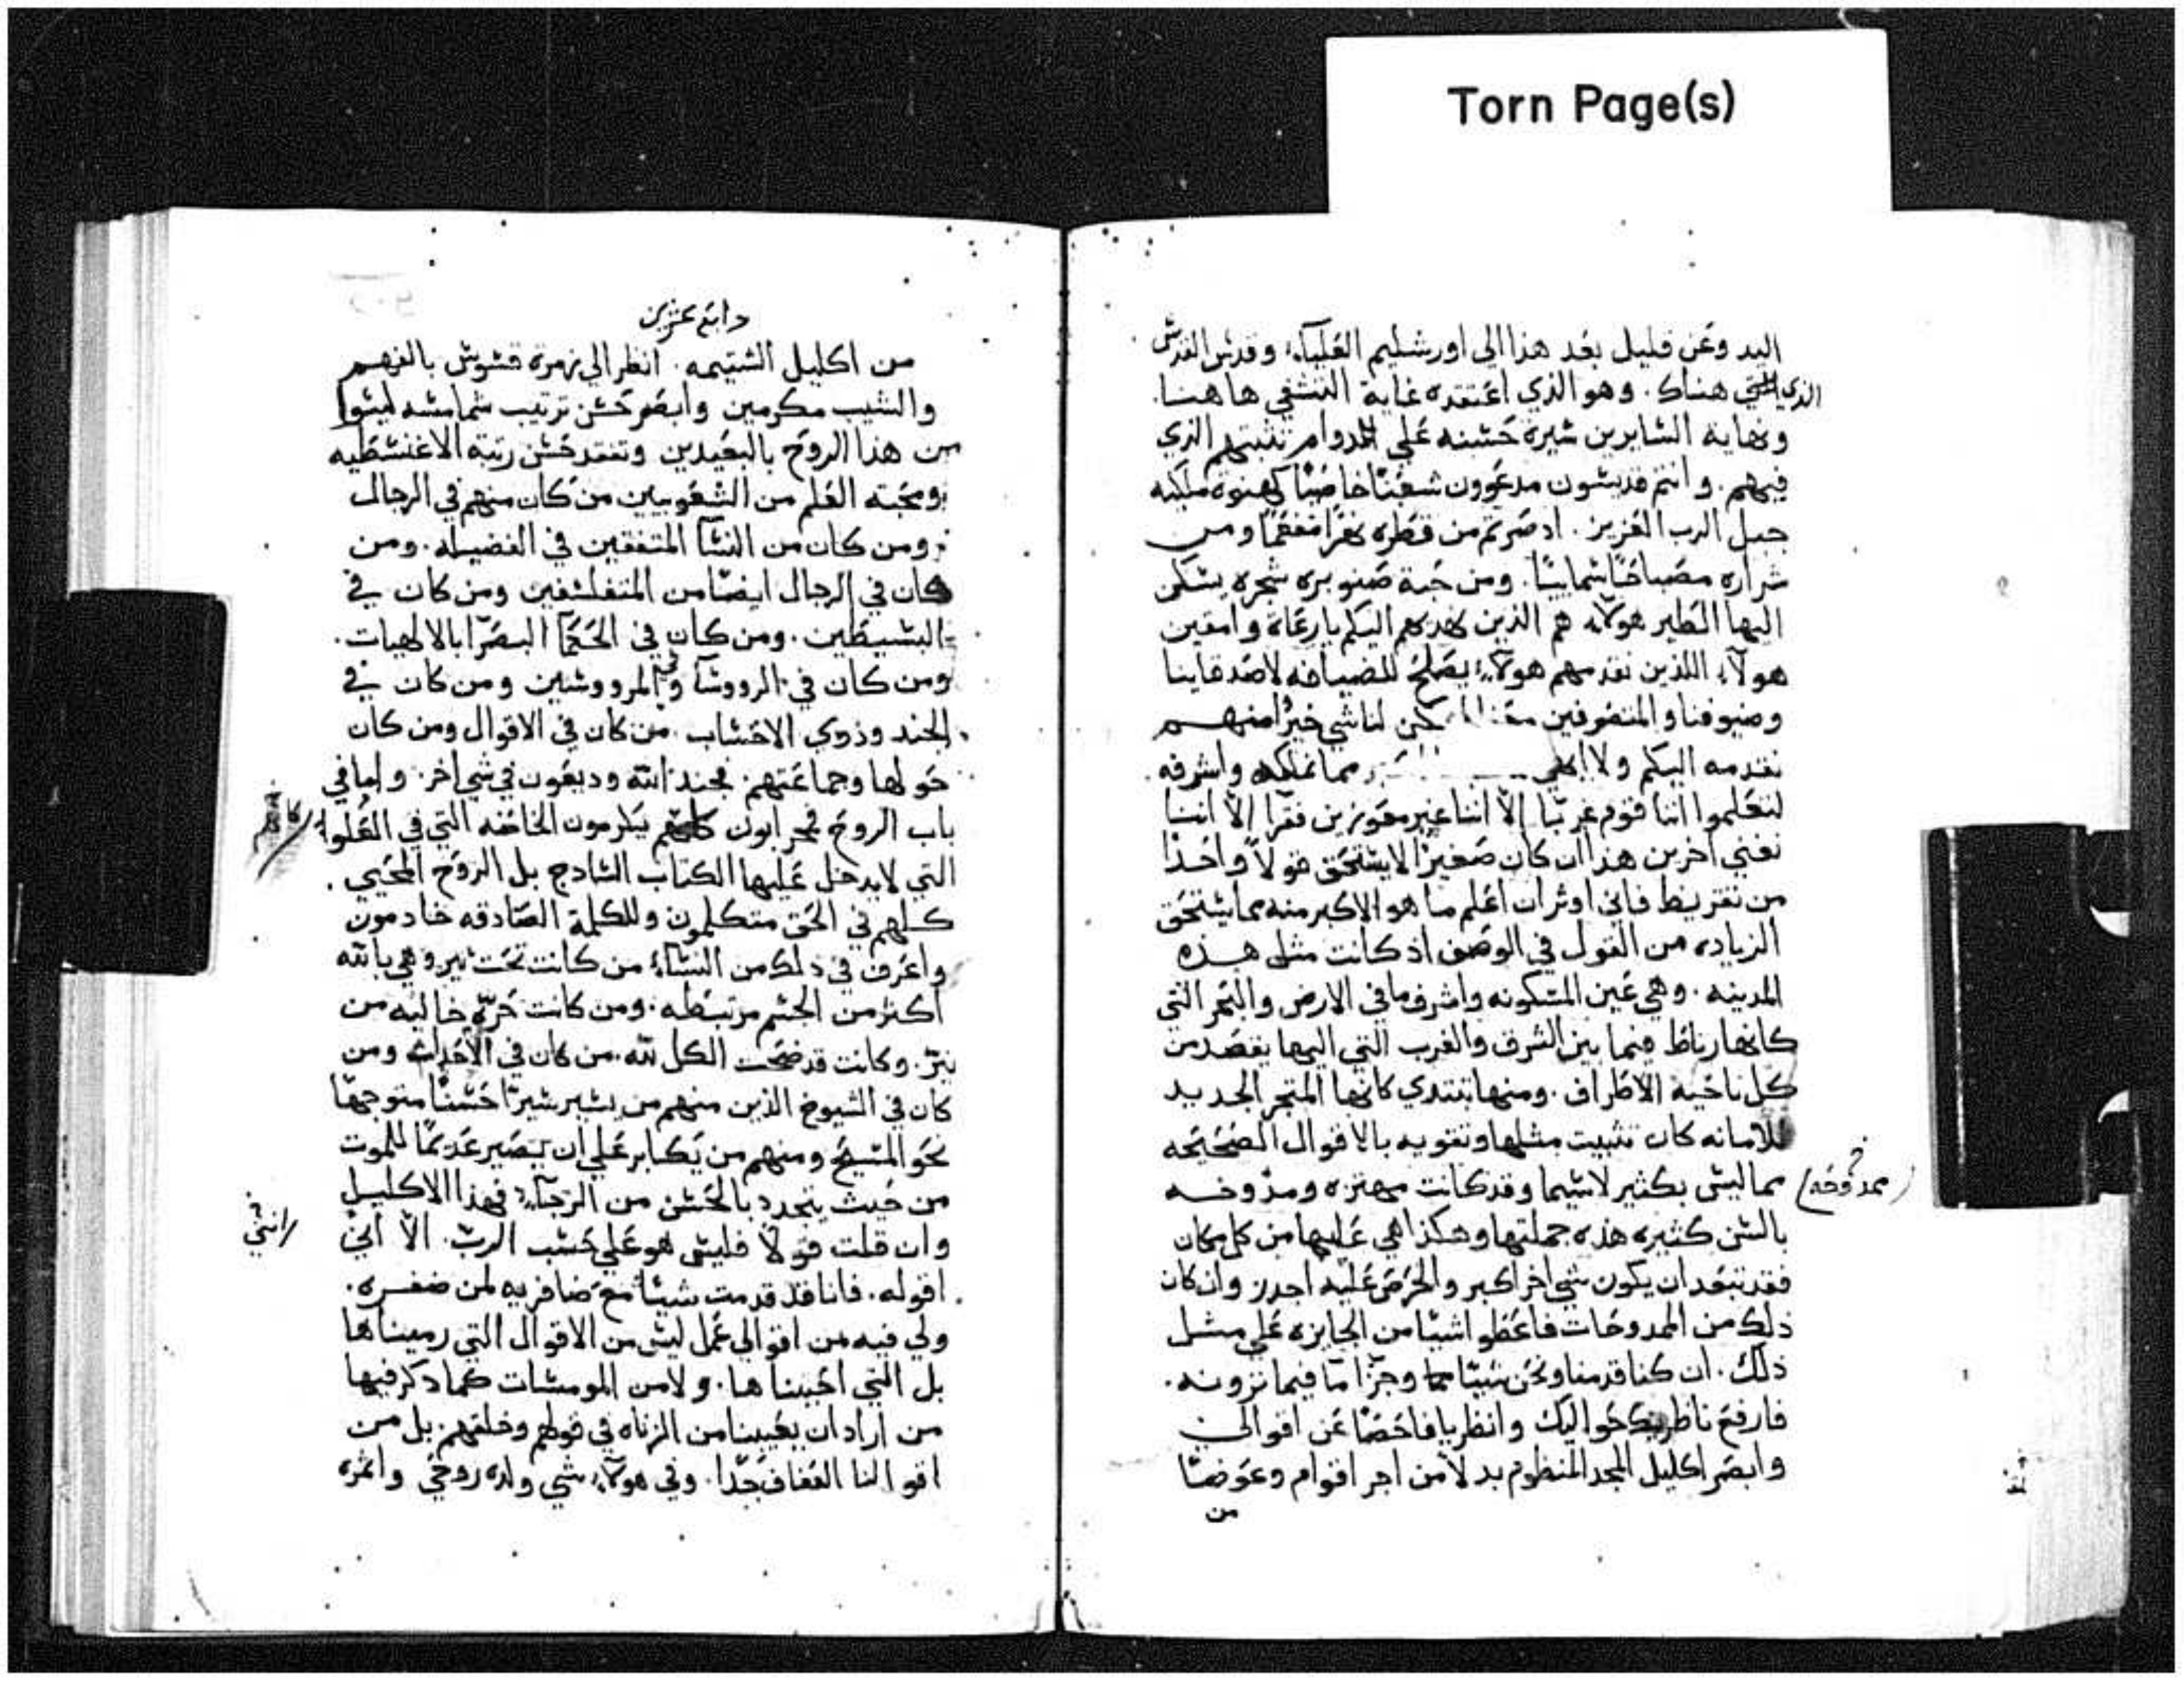 Torn Page(s)
اليد وعن قليل بعد هذا الي اورشليم العليآء وقدس القدس
الذي هناك. وهو الذي اعتقده غاية التشفي هاهنا.
ونهاية السايرين سيرة حسنه علي الدوام تثبتهم الذي
فيهم. وانتم قديسون مدعوون شعبًا خاصًا كهنوة ملكيه
حبل الرب العزيز. اذ صرتم من قطره نهرًا مفعمًا ومن
شراره مصباحًا سماييًا. ومن حبة صنوبره شجره يسكن
اليها الطير هولآء هم الذين نهديهم اليكم يا رعاة وامقين
هولآء اللذين نقدمهم هولآء يصلح للضيافه لاصدقاينا
وضيوفنا والمتصرفين معنا لكن لنا شي خيرًا منهم
نقدمه اليكم ولا مما نملكه واشرفه
لتعلموا اننا قوم غربًا إلّا اننا غير معوزين فقرا إلّا اننا
نغني اخرين هذا ان كان صغيرًا لا يستحق قولًا واحدًا
من تقريظ فاني اوثر ان اعلم ما هو الاكبر منه مما يستحق
الزياده من القول في الوصف اذ كانت مثل هذه
المدينه. وهي عين المسكونه واشرف ما في الارض والبحر التي
كانها رباط فيما بين الشرق والغرب التي اليها يقصد من
كل ناحية الاطراف. ومنها تبتدي كانها المتجر الجديد
للامانه كان تثبيت مثلها وتقويه بالاقوال الصحيحه
مما ليس بكثير لاسيما وقد كانت مهتزه ومدوخه
ممدوحه
بالسن كثيره هذه جملتها وهكذا هي عليها من كل مكان
فقد تبعد ان يكون شي اخر اكبر والحرص عليه اجدر وان كان
ذلك من الممدوحات فاعطو اشيا من الجايزه علي مثل
ذلك. ان كنا قدمنا ونحن شيئًا وجزًا ما فيما ترونه.
فارفع ناظريك حواليك وانظر يا فاحصًا عن اقوالي
وابصر اكليل المجد المنظوم بدلًا من اجر اقوام وعوضًا
من
رابع عزين
من اكليل الشتيمه. انظر الي زمرة قسوس بالفهم
والشيب مكرمين وابصر حسن ترتيب شمامسه ليسوا
من هذا الروح بالبعيدين وتفقد حسن رتبة الاغنسطيه
ومحبته العلم من الشعوبيين من كان منهم في الرجال
ومن كان من النسآ المتفقين في الفضيله. ومن
كان في الرجال ايضًا من المتفلسفين ومن كان في
البسيطين. ومن كان في الحكمآ البصرآ بالالهيات.
ومن كان في الرووسآ وفي المرووسين ومن كان في
الجند وذوي الاحساب. من كان في الاقوال ومن كان
حولها وجماعتهم. فجند الله وديعون في شي اخر. واما في
باب الروح فمحرابون كلهم يكرمون الخاصه التي في العلوا
التي لا يدخل عليها الكتاب السادج بل الروح المحيي.
كلهم في الحق متكلمون وللكلمة الصادقه خادمون
واعرف في ذلك من النسآء من كانت تحت نير وهي بالله
اكثر من الجسم مرتبطه. ومن كانت حرّه خاليه من
نيرّ. وكانت قد ضحت الكل لله. من كان في الاحداث ومن
كان في الشيوخ الذين منهم من يسير سيرًا حسنًا متوجهًا
نحو المسيح ومنهم من يكابر علي ان يصير عديمًا للموت
من حيث يتجدد بالحسن من الرجآء فهذا الاكليل
وان قلت قولًا فليس هو علي حسب الربّ. الّا انّي
اقوله. فانا فقد قدمت شيئًا مع ضافريه لمن ضفره.
ولي فيه من اقوالي عمل ليس من الاقوال التي رميناها
بل التي احببناها. ولا من المومسات كما ذكر فيها
من اراد ان يعيبنا من الزناه في قولهم وخلقهم. بل من
اقوالنا العفاف جدًا. وفي هولآء شي ولده روحي واثمره